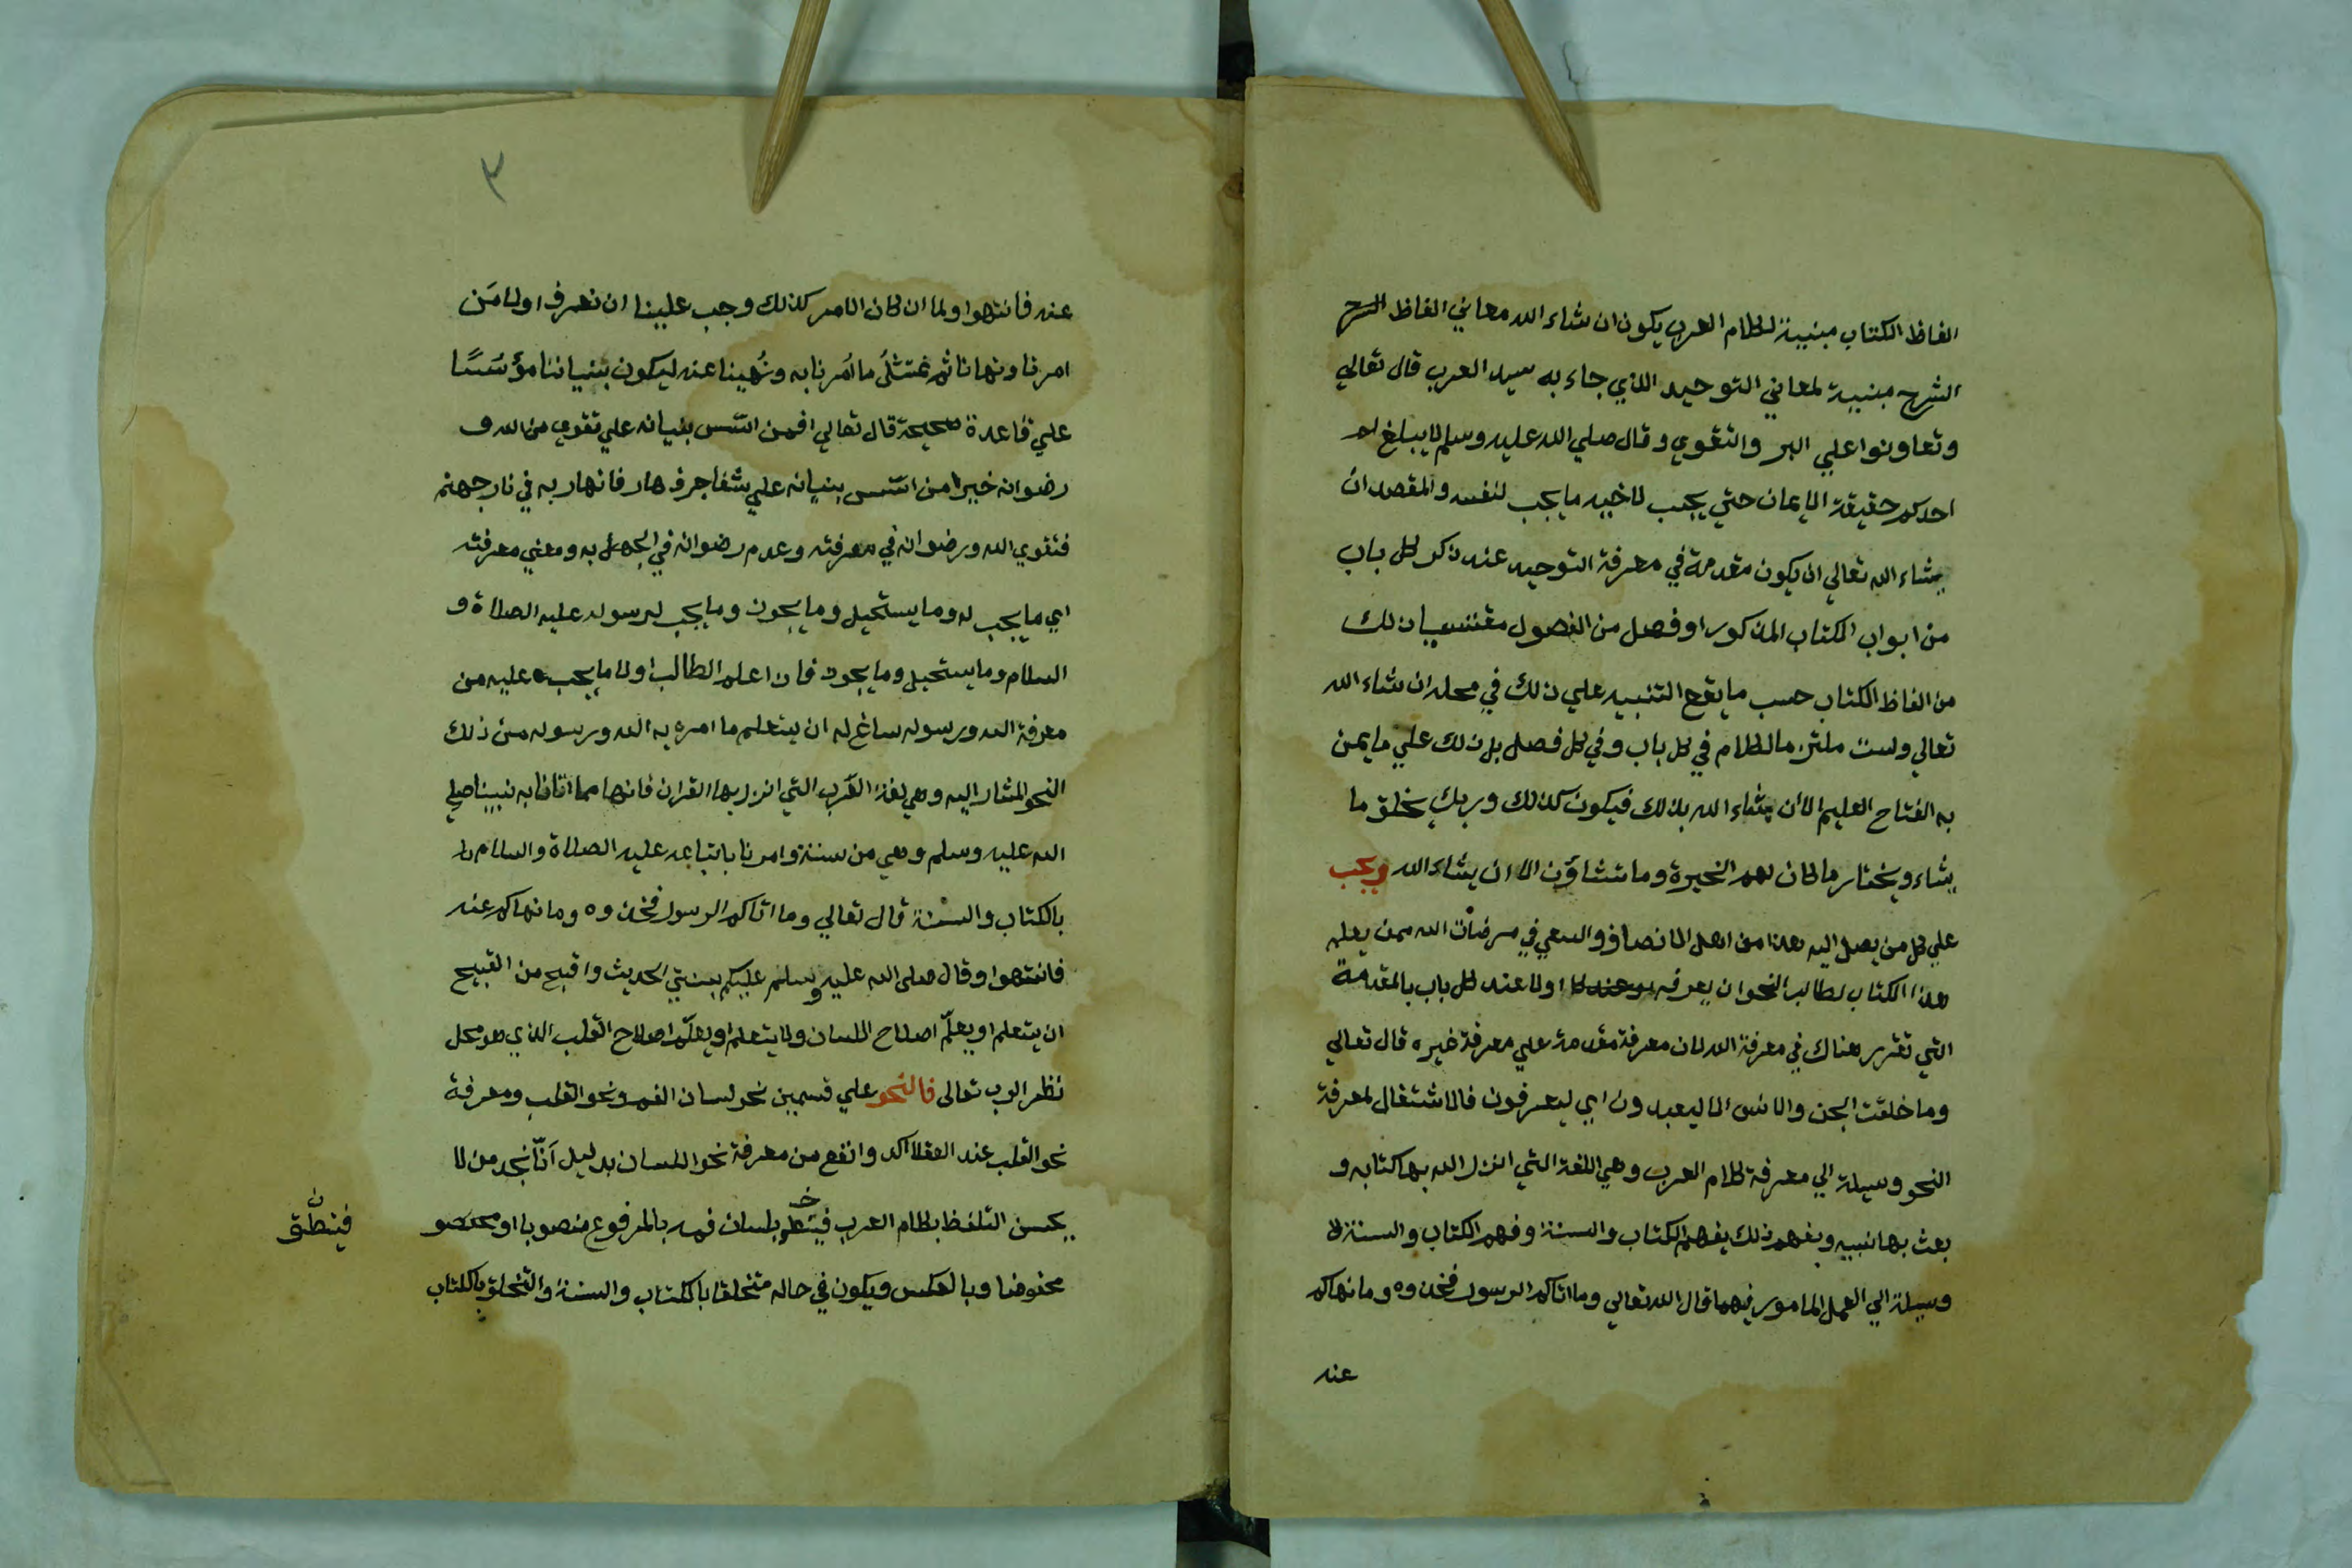 الفاظ الكتاب مبنية لكلام العرب يكون ان شاء الله معاني الفاظ الشرح
الشرح مبنية لمعاني التوحيد الذي جاء به سيد العرب قال تعالي
وتعاونوا علي البر والتقوي وقال صلي الله عليه وسلم لا يبلغ
احدكم حقيقة الايمان حتي يحب لاخيه ما يحب لنفسه والمقصد ان
يشاء الله تعالي ان يكون مقدمة في معرفة التوحيد عند ذكر كل باب
من ابواب الكتاب المذكور او فصل من الفصول مقتبسا ذلك
من الفاظ الكتاب حسب ما يقع التنبيه علي ذلك في محله ان شاء الله
تعالي ولست ملتزما لكلام في كل باب وفي كل فصل بل ذلك علي ما يمن
به الفتاح العليم الا ان يشاء الله بذلك فيكون كذلك وربك يخلق ما
يشاء ويختار ما كان لهم الخيرة وما تشاؤن الا ان يشاء الله ويجب
علي كل من يصل اليه هذا من اهل الانصاف والسعي في مرضات الله ممن يعلم
هذا الكتاب لطالب النحو ان يعرفه اولا عند كل باب بالمقدمة
التي تقرر هناك في معرفة الله لان معرفة مقدمة علي معرفة غيره قال تعالي
وما خلقت الجن والانس الا ليعبدون اي ليعرفون فالاشتغال لمعرفة
النحو وسيلة الي معرفة كلام العرب وهي اللغة التي انزل الله بها كتابه و
بعث بها نبيه وبفهم ذلك يفهم الكتاب والسنة وفهم الكتاب والسنة لا
وسيلة الي العمل المامور فيهما قال الله تعالي وما اتاكم الرسول فخذوه وما نهاكم
عنه
٣
عنه فانتهوا ولما ان كان الامر كذلك وجب علينا ان نعرف اولا مَن
امرنا ونهانا ثم نمتثلُ ما اُمرنا به ونُهينا عنه ليكون بنياننا مؤسَسًا
علي قاعدة صحيحة قال تعالي افمن اسّس بنيانه علي تقوي من الله و
رضوانه خير امن اسّس بنيانه علي شفا جرف هار فانهار به في نار جهنم
فتقوي الله ورضوانه في معرفته وعدم رضوانه في الجهل به ومعني معرفته
اي ما يجب له وما يستحيل وما يجوز وما يجب لرسوله عليه الصلاة و
السلام وما يستحيل وما يجوز فاذا علم الطالب اولا ما يجب عليه من
معرفة الله ورسوله ساغ له ان يتعلم ما امره به الله ورسوله من ذلك
النحو المشار اليه وهي لغة العرب التي انزل بها القران فانها مما اتانا به نبينا صلي
الله عليه وسلم وهي من سنته وامرنا باتباعه عليه الصلاة والسلام
بالكتاب والسنة قال تعالي وما اتاكم الرسول فخذوه وما نهاكم عنه
فانتهوا وقال صلى الله عليه وسلم عليكم بسنتي الحديث واقبح من القبيح
ان يتعلم او يعلّم اصلاح اللسان ولا يتعلم او يعلّم اصلاح القلب الذي هو محل
نظر الرب تعالى فالنحو علي قسمين نحو لسان الفم ونحو القلب ومعرفة
نحو القلب عند العقلا اكد وانفع من معرفة نحو اللسان بدليل اَنّا نجد من لا
يحسن التلفظ بكلام العرب بلسان فمه بالمرفوع منصوبا او
مخفوضا وبالعكس ويكون في حاله متخلقا بالكتاب والسنة والتخلق بالكتاب
فينطق